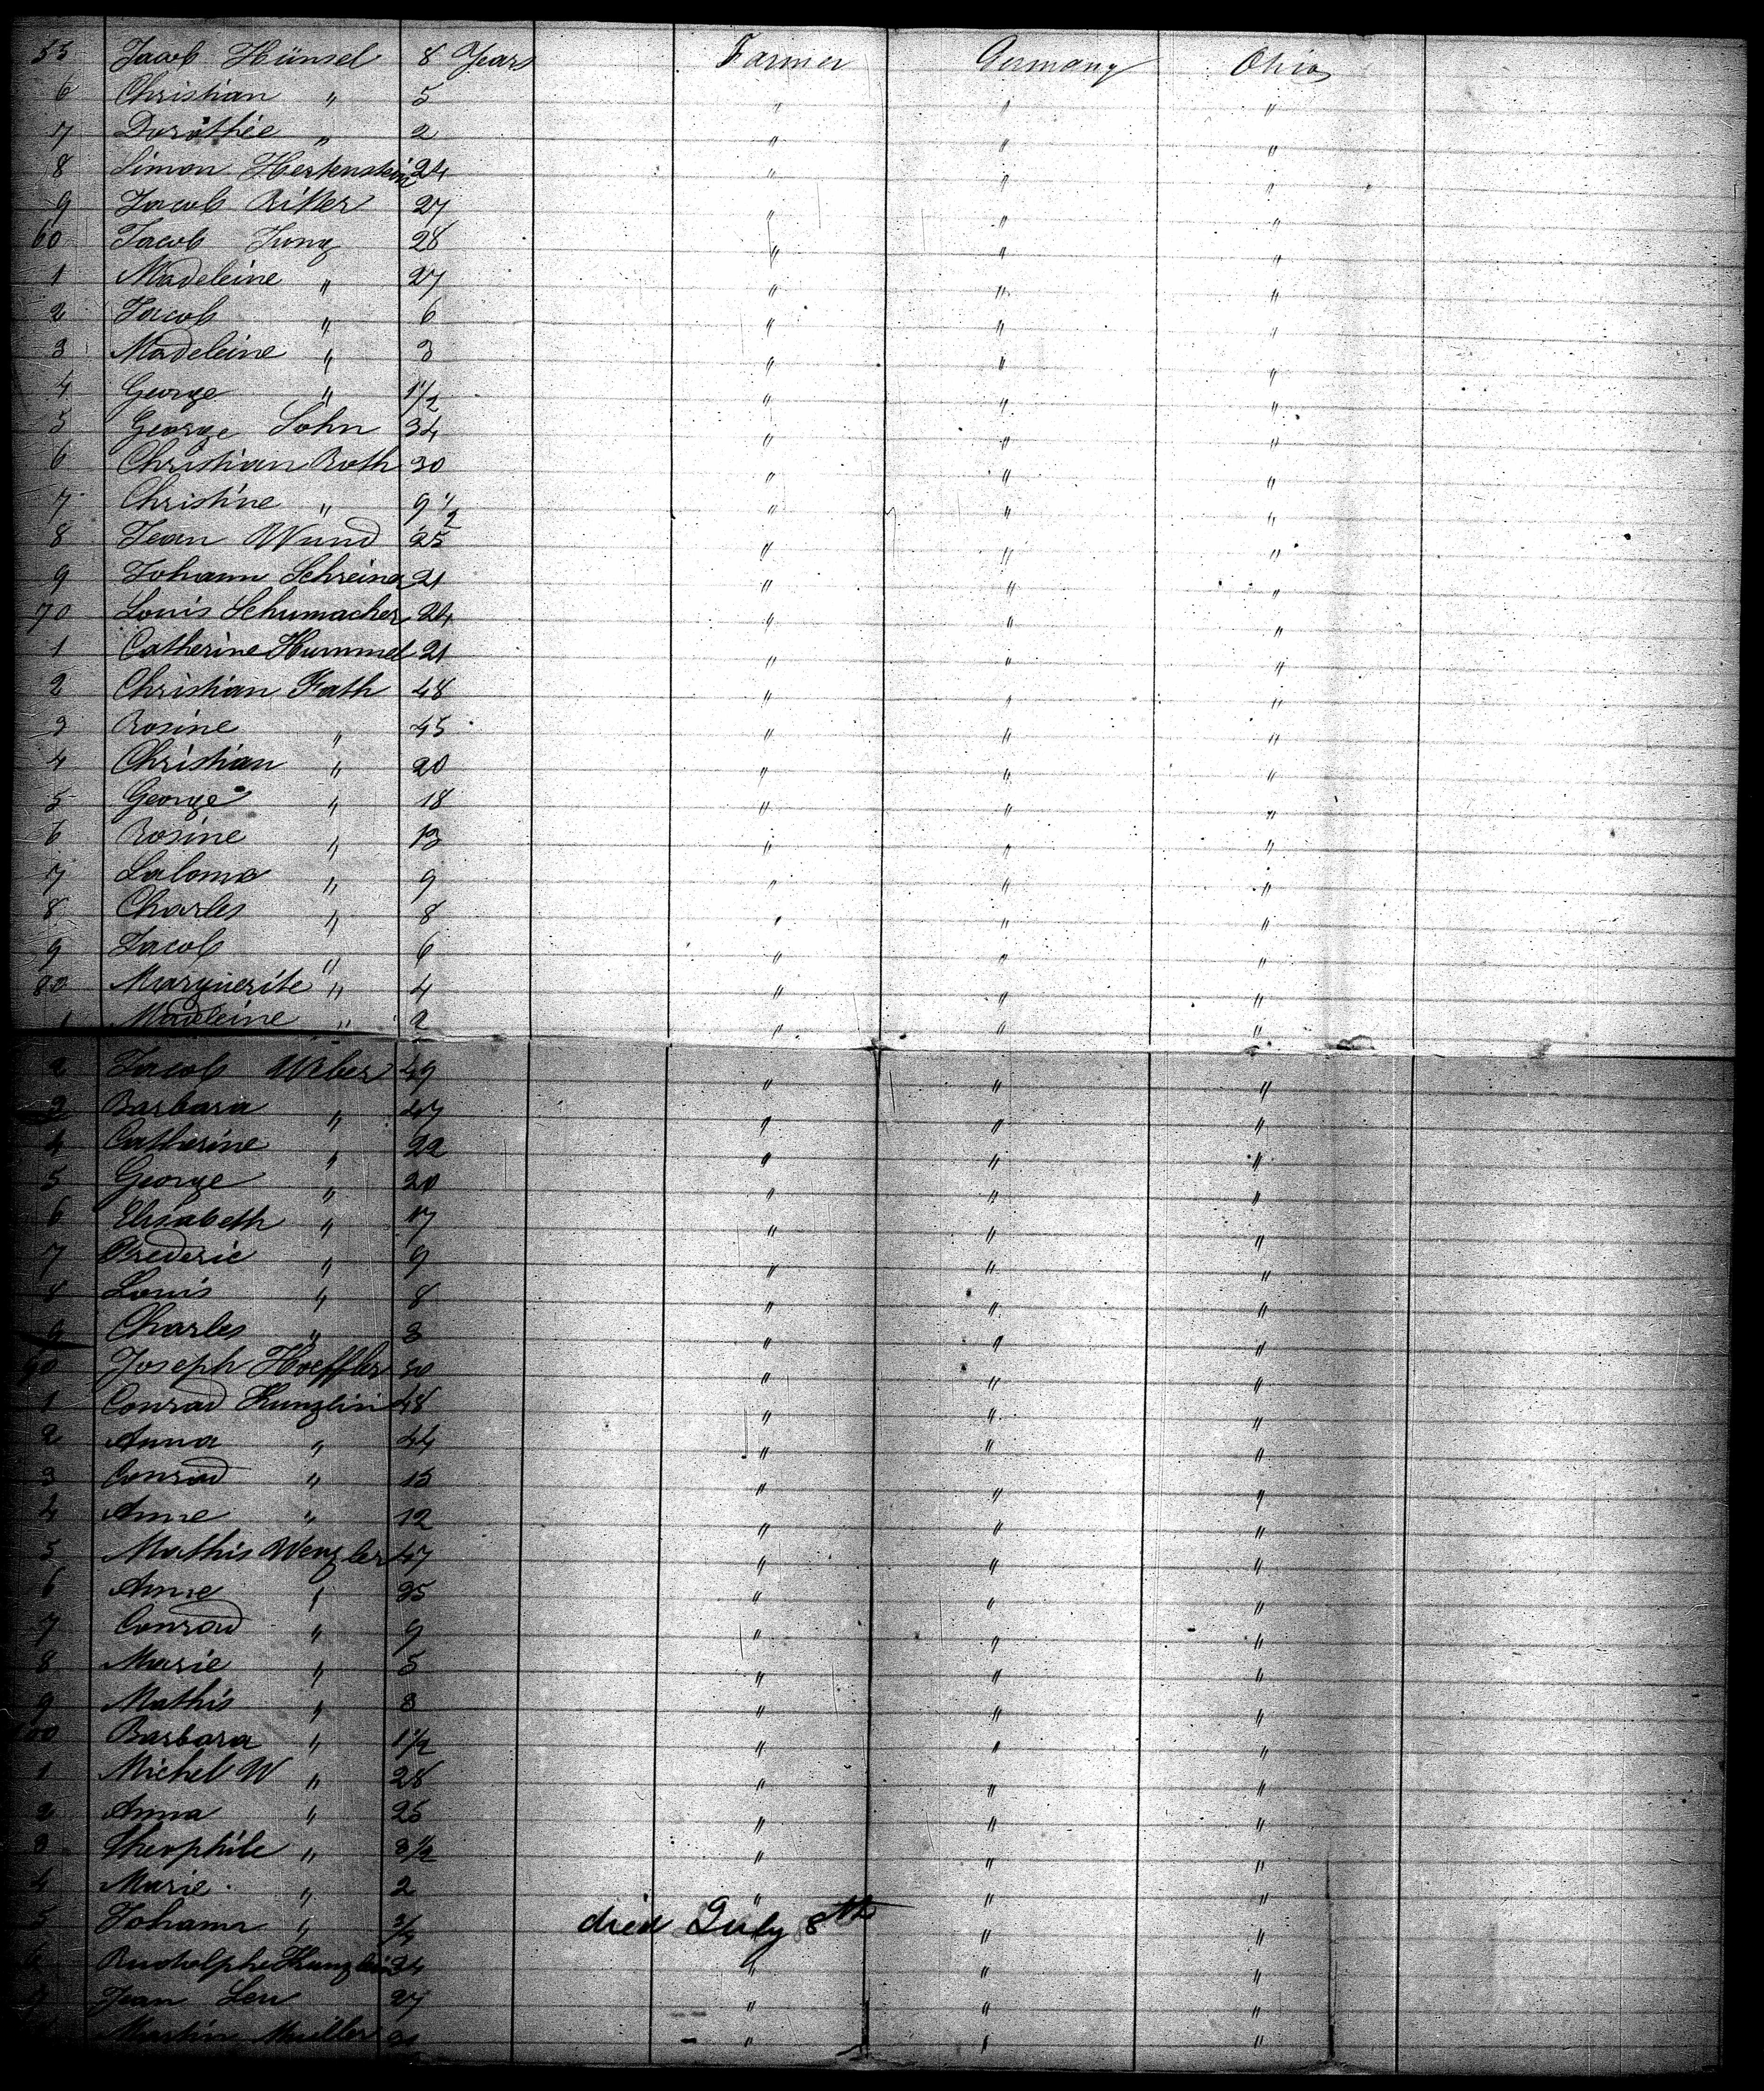 55 Jacob Hünsel 8 Years Farmer Germany Ohio
6 Christian " 5 " " "
7 Dorothée " 2 " " "
8 Simon Hertenstein 24 " " "
9 Jacob Ritter 27 " " "
60 Jacob Jung 28 " " "
1 Madeleine " 27 " " "
2 Jacob " 6 " " "
3 Madeleine " 3 " " "
4 George " 1 1/2 " " "
5 George Sohn 34 " " "
6 Christian Roth 30 " " "
7 Christine " 9 1/2 " " "
8 Jean Wund 25 " " "
9 Johann Schreiner 21 " " "
70 Louis Schumacher 24 " " "
1 Catherine Hummel 21 " " "
2 Christian Fath 48 " " "
3 Rosine " 45 " " "
4 Christian " 20 " " "
5 George " 18 " " "
6 Rosine " 13 " " "
7 Saloma " 9 " " "
8 Charles " 8 " " "
9 Jacob " 6 " " "
80 Marguerite " 4 " " "
1 Madeleine " 2 " " "
2 Jacob Weber 49 " " "
3 Barbara " 47 " " "
4 Catherine " 22 " " "
5 George " 20 " " "
6 Elisabeth " 17 " " "
7 Frederic " 9 " " "
8 Louis " 8 " " "
9 Charles " 3 " " "
90 Joseph Hoeffler 30 " " "
1 Conrad Kunzlin 48 " " "
2 Anna " 44 " " "
3 Conrad " 15 " " "
4 Anne " 12 " " "
5 Mathis Wenzler 47 " " "
6 Anne " 35 " " "
7 Conrad " 9 " " "
8 Marie " 5 " " "
9 Mathis " 3 " " "
100 Barbara " 1 1/2 " " "
1 Michel W " 28 " " "
2 Anna " 25 " " "
3 Theophile " 3 1/2 " " "
4 Marie " 2 " " "
5 Johann " 3/4 died July 8th " "
6 Rudolphe Kunzlin 34 " " "
7 Jean Leu 27 " " "
Martin Muller " " "